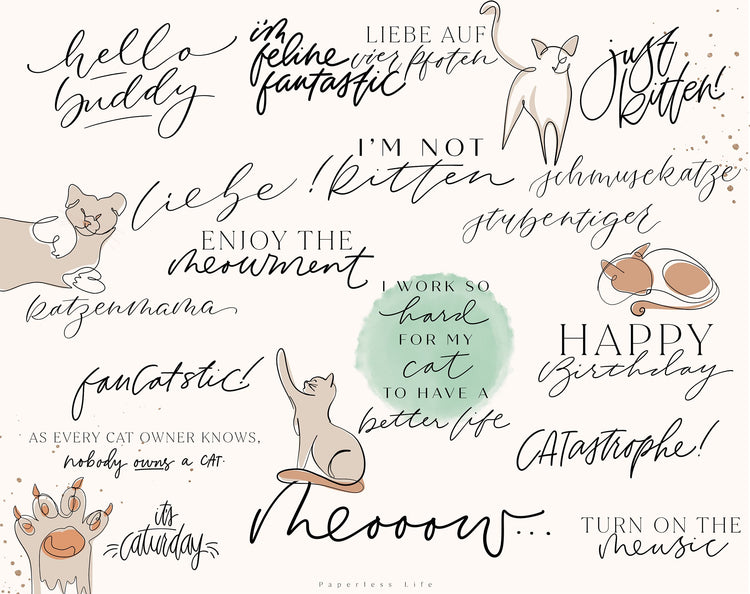 hello
buddy
i'm
feline
fantastic
LIEBE AUF
vier Pfoten
just
kitten!
liebe!
I'M NOT
kitten
schmusekatze
stubentiger
ENJOY THE
meowment
katzenmama
I WORK SO
hard
FOR MY
cat
TO HAVE A
better life
HAPPY
Birthday
fanCatstic!
AS EVERY CAT OWNER KNOWS,
nobody owns a CAT.
CATastrophe!
it's
caturday
Meooow...
TURN ON THE
meusic
Paperless Life